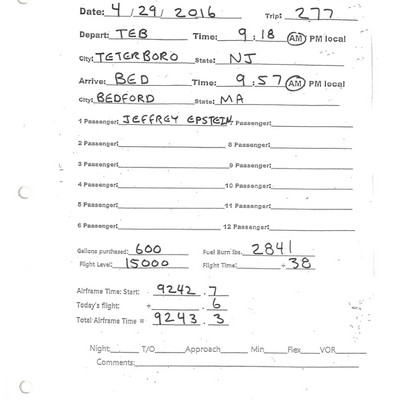 Date: 4/29/2016 Trip: 277
Depart: TEB Time: 9:18 AM PM local
City: TETERBORO State: NJ
Arrive: BED Time: 9:57 AM PM local
City: BEDFORD State: MA
1 Passenger: JEFFREY EPSTEIN 7 Passenger:
2 Passenger: 8 Passenger:
3 Passenger: 9 Passenger:
4 Passenger: 10 Passenger:
5 Passenger: 11 Passenger:
6 Passenger: 12 Passenger:
Gallons purchased: 600 Fuel Burn lbs. 2841
Flight Level: 15000 Flight Time: + 38
Airframe Time: Start: 9242.7
Today's flight: + .6
Total Airframe Time = 9243.3
Night: T/O Approach Min Flex VOR
Comments: